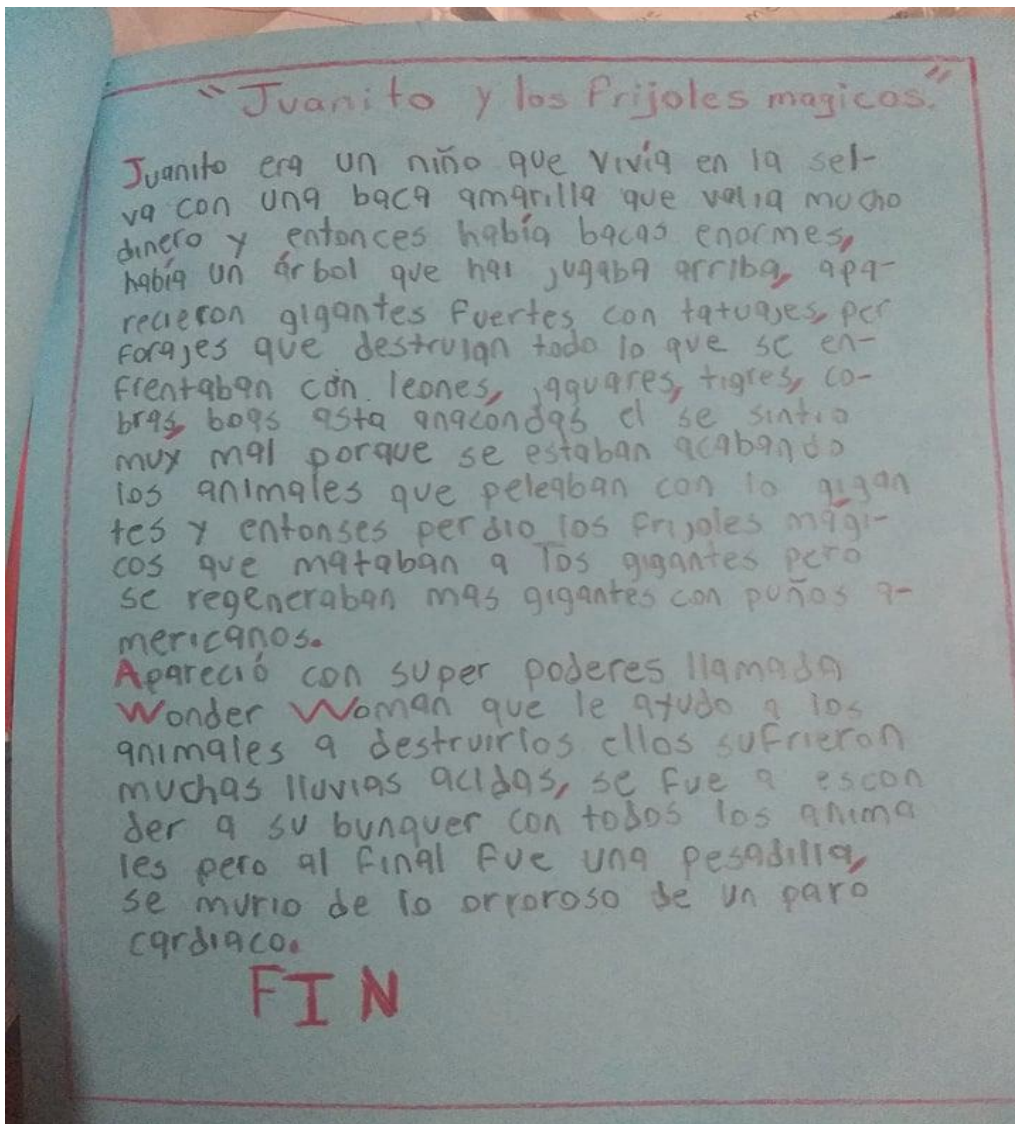 "Juanito y los frijoles magicos."
Juanito era un niño que vivía en la sel-
va con una baca amarilla que valia mucho
dinero y entonces había bacas enormes,
había un árbol que hai jugaba arriba, apa-
recieron gigantes fuertes con tatuajes, per
forajes que destruian todo lo que se en-
frentaban con leones, jaguares, tigres, co-
bras, boas asta anacondas el se sintio
muy mal porque se estaban acabando
los animales que peleaban con lo gigan
tes y entonses perdio los frijoles mági-
cos que mataban a los gigantes pero
se regeneraban mas gigantes con puños a-
mericanos.
Apareció con super poderes llamada
Wonder Woman que le ayudo a los
animales a destruirlos ellos sufrieron
muchas lluvias acidas, se fue a escon
der a su bunquer con todos los anima
les pero al final fue una pesadilla,
se murio de lo orroroso de un paro
cardiaco.
FIN